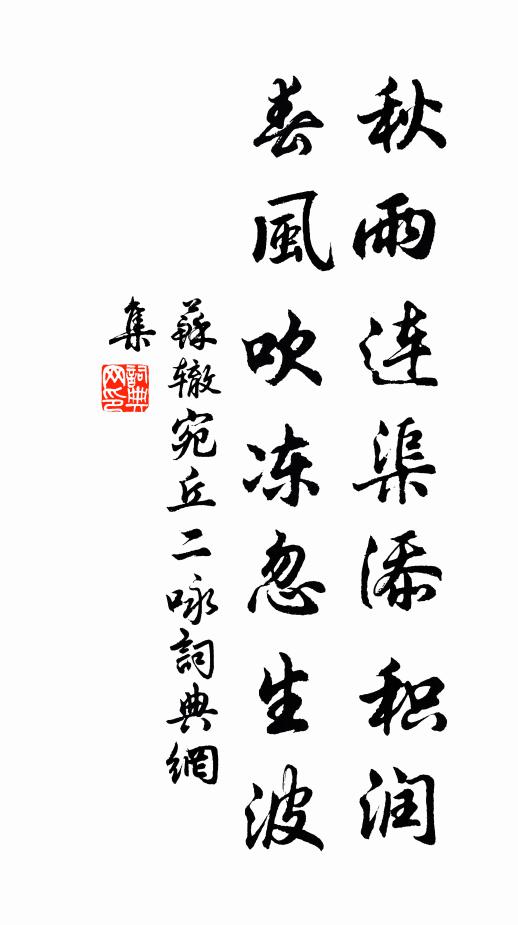 秋雨连渠添积润
春風吹冻忽生波
蘇辙宛丘二咏詞典網
集
詞典网印